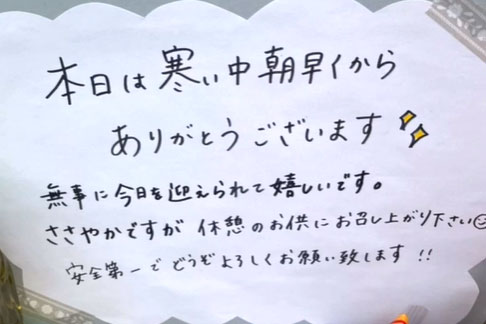 本日は寒い中朝早くから
ありがとうございます
無事に今日を迎えられて嬉しいです。
ささやかですが 休憩のお供にお召し上がり下さい
安全第一でどうぞよろしくお願い致します!!